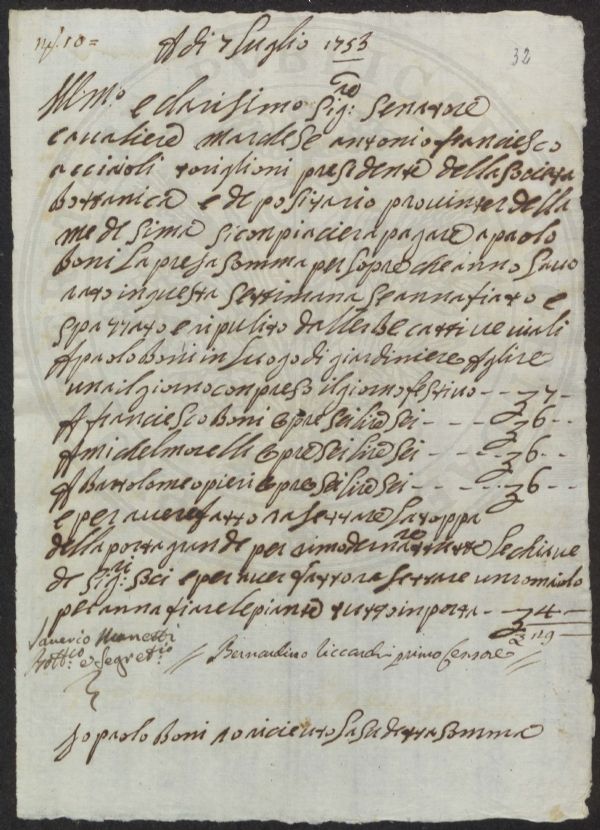 N.º 10 =
A di 7 Luglio 1753
32
Ill.mo e clarisimo Sig.re Senatore
Cavaliere Marchese Antonio Franciesco
Acciaioli Toriglioni presidente della Società
Bottanica e depositario provinter della
medesima si conpiaciera pagare a paolo
Boni La presa Somma per Sopre che anno Lavo
rato in questa Settimana Se annafiato e
spazzato e ripulito dall erbe cattive viali
A paolo Boni in Luogo di giardiniere A glire
una il giorno conpreso il giorno festivo - - £ 7 -
A Franciesco Boni opre Sei lire Sei - - - - £ 6 - -
A Midel morelli opre Sei lire Sei - - - - £ 6 - -
A Bartolomeo pieri opre Sei lire Sei - - - - £ 6 - -
e per avere fatto raserrare La toppa
della porta grande per rimodernare tutte Le chiave
de Sig.ri Soci e per aver fatto raserrare un romaiolo
per annafiare le piante tutto inporta - - £ 4 - -
£ 29
Saverio Manetti
Bott.co e Segret.io
Bernardino Riccardi primo Censore
Io paolo Boni o ricieuto La Sudetta Somma